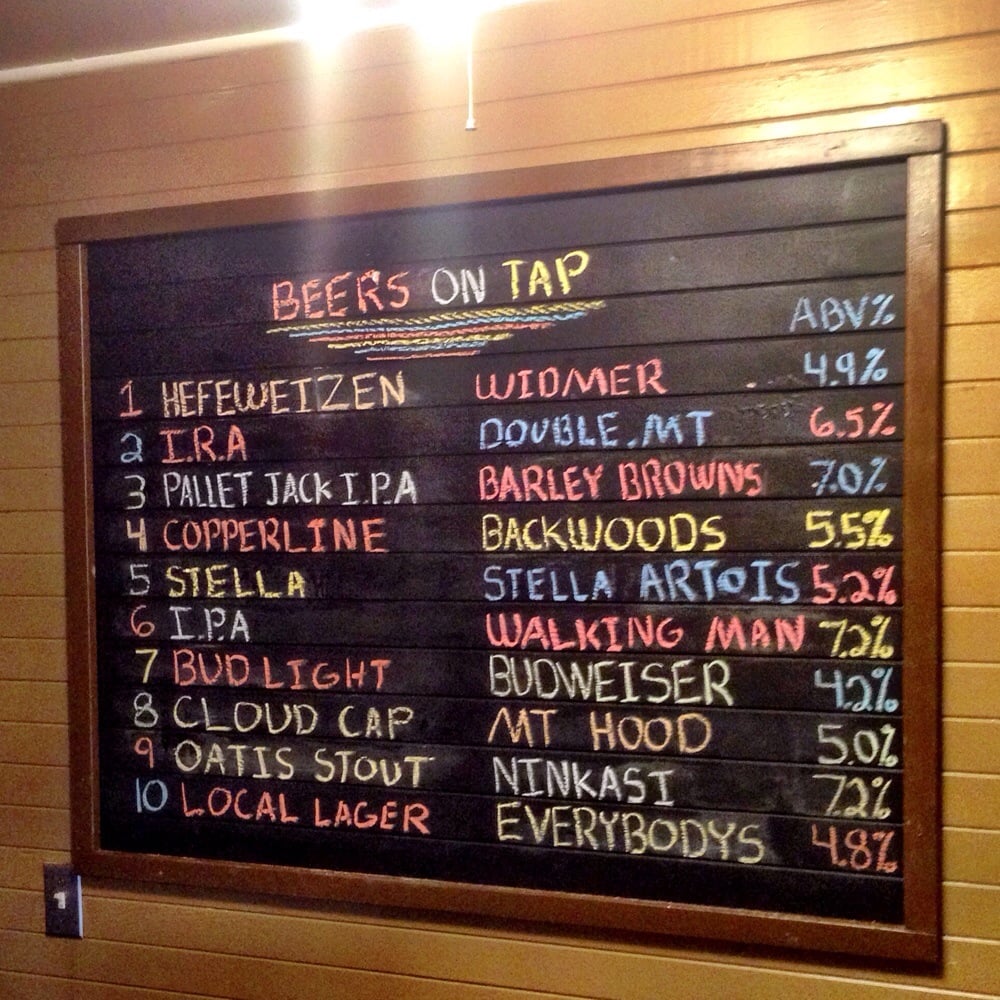 BEERS ON TAP
ABV%
1 HEFEWEIZEN WIDMER 4.9%
2 I.R.A DOUBLE.MT 6.5%
3 PALLET JACK I.P.A BARLEY BROWNS 7.0%
4 COPPERLINE BACKWOODS 5.5%
5 STELLA STELLA ARTOIS 5.2%
6 I.P.A WALKING MAN 7.2%
7 BUD LIGHT BUDWEISER 4.2%
8 CLOUD CAP MT HOOD 5.0%
9 OATIS STOUT NINKASI 7.2%
10 LOCAL LAGER EVERYBODYS 4.8%